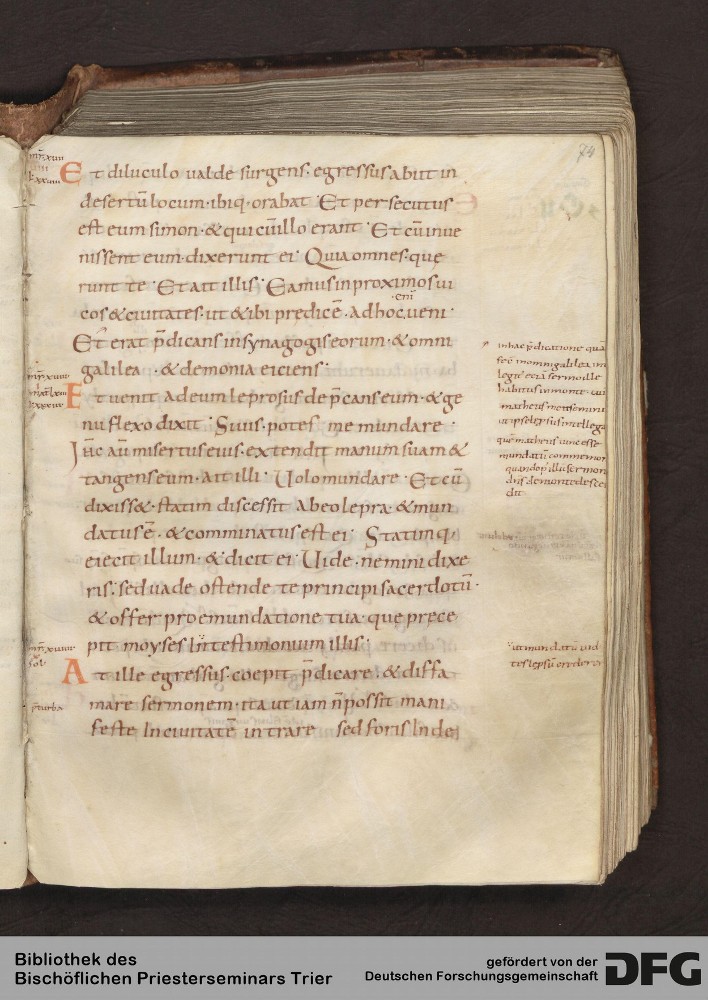 74
Et diluculo ualde surgens· egressus abiit in
desertū locum· ibiq· orabat· Et persecutus
est eum simon· & qui cū illo erant· Et cū inue
nissent eum· dixerunt ei· Quia omnes· que
runt te· Et ait illis· Eamus in proximos ui
cos & ciuitates· ut & ibi predicē· ad hoc ueni·
enī
Et erat p̄dicans in synagogis eorum· & omni
galilea· & demonia eiciens·
Et uenit ad eum leprosus dep̄cans eum· & ge
nu flexo dixit· Si uis· potes me mundare·
Ih̄c aū misertus eius· extendit manum suam &
tangens eum· ait illi· Uolo mundare· Et cū
dixiss&· statim discessit ab eo lepra· & mun
datus ē· & comminatus est ei· Statimq·
eiecit illum· & dicit ei· Uide· nemini dixe
ris· sed uade ostende te principi sacerdotū·
& offer pro emundatione tua· que prece
pit moyses In testimonium illis·
At ille egressus· coepit p̄dicare· & diffa
mare sermonem· ita ut iam n̄ possit mani
feste In ciuitatē intrare sed foris In de
in hac p̄dicatione qua
fec̄ in omni galilea
legit̄ etiā sermo ille
habitus in monte· cui
matheus
que matheus
mundatū commemor
quando p̄ illū sermon
dn̄s de monte desce
dit
ut mundatū uid
turba
Bibliothek des
Bischöflichen Priesterseminars Trier
gefördert von der
Deutschen Forschungsgemeinschaft
DFG